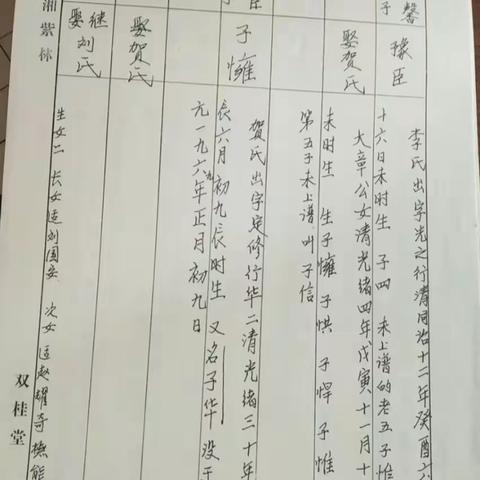 馨
子
豫臣
李氏出字光之行清同治十二年癸酉六
十六日未时生 子四 未上谱的老五子惟
娶贺氏
大章公女清光绪四年戊寅十一月十
未时生 生子㦂 子惧 子悍 子惟
第五子未上谱 叫子信
臣
子㦂
贺氏出字定修行华二清光绪三十年
辰六月初九辰时生 又名子华 没于
元一九六九年正月初九日
娶贺氏
继娶刘氏
生女二 长女适刘国安 次女适赵耀奇 抚熊
湘紫林
双桂堂